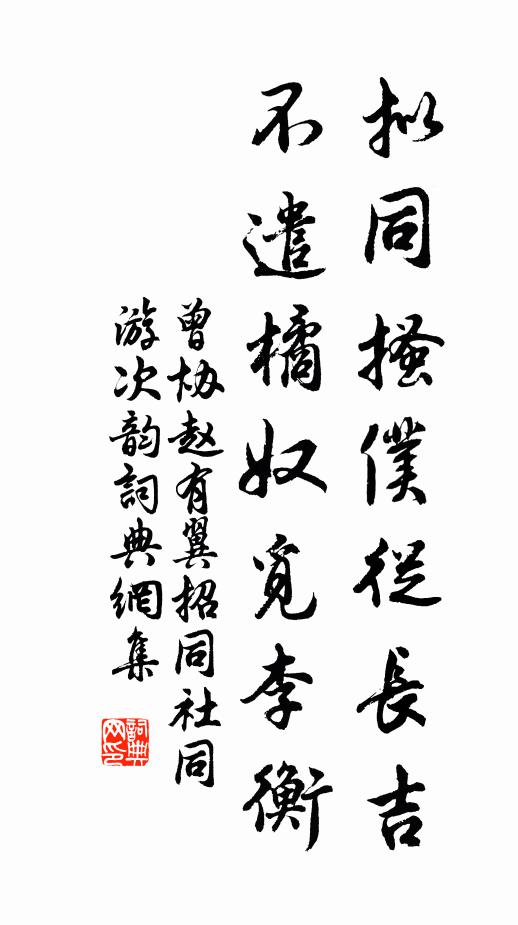 拟同搔僕從長吉
不遣橘奴覓李衡
曾协赵有翼招同社同
游次韵詞典網集
詞典
网印